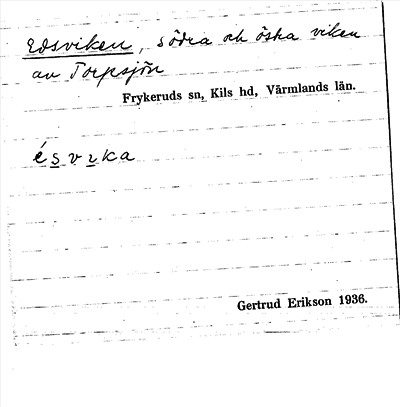 Edsviken, södra och östra viken
av Torpsjön
Frykeruds sn, Kils hd, Värmlands län.
ésvɩka
Gertrud Erikson 1936.